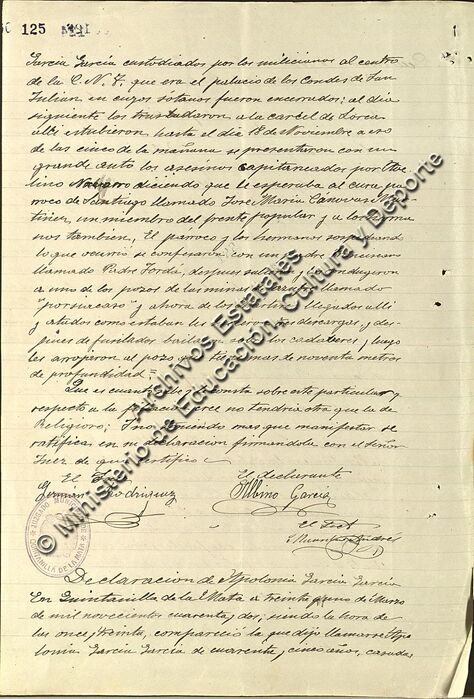 125
Garcia Garcia custodiados por los milicianos al centro
de la C. N. T. que era el palacio de los Condes de San
Julian, en cuyos sótanos fueron encerrados; al dia
siguiente los trasladaron a la carcel de Lorca
alli estubieron hasta el dia 18 de Noviembre a eso
de las cinco de la mañana se presentaron con un
grande auto los asesinos capitaneados por
lino Navarro diciendo que le esperaba al cura pa
rroco de Santiago llamado Jose Maria Canovas
tinez, un miembro del frente popular y a los herma
nos tambien. El párroco y los hermanos sospechando
lo que ocurria se confesaron con un
llamado Padre Jorda, despues
a uno de los pozos de las minas llamado
"porsiacaso" y ahora de llegados alli
y atados como estaban les descarga, y des-
pues de fusilados bailaron sobre los cadaveres y luego
les arrojaron al pozo que tiene mas de noventa metros
de profundidad =
Que es cuanto le consta sobre este particular y
respecto a la no tendria otra que la de
Religioso; y no teniendo mas que manifestar se
ratifica en su declaracion firmandola con el Señor
Juez de que certifico
El declarante
German Rodriguez
Albino Garcia
El Secr
Declaracion de Apolonia Garcia Garcia
En Quintanilla de la Mata a treinta y uno de Marzo
de mil novecientos cuarenta y dos; siendo la hora de
las once y treinta, comparecio la que dijo llamarse Apo
lonia Garcia Garcia de cuarenta y cinco años, casada,
QUINTANILLA DE LA MATA
© Ministerio de Educación, Cultura y Deporte
Archivos Estatales